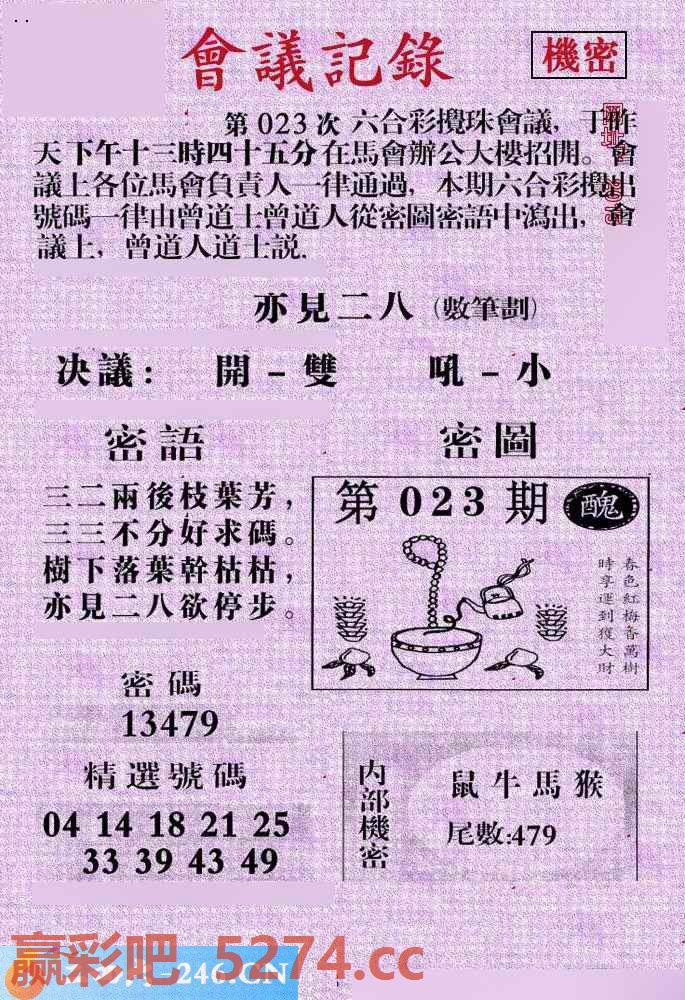 會議記錄
機密
第 023 次 六合彩攪珠會議，于昨
天下午十三時四十五分在馬會辦公大樓招開。會
議上各位馬會負責人一律通過，本期六合彩攪出
號碼一律由曾道士曾道人從密圖密語中瀉出，會
議上，曾道人道士説.
亦見二八（數筆劃）
决議： 開－雙 吼－小
密語
三二兩後枝葉芳，
三三不分好求碼。
樹下落葉幹枯枯，
亦見二八欲停步。
密圖
第 023 期 醜
春色紅梅香萬樹
時享運到獲大財
密碼
13479
精選號碼
04 14 18 21 25
33 39 43 49
内部機密
鼠牛馬猴
尾數:479
赢彩吧 5274.cc
246.CN